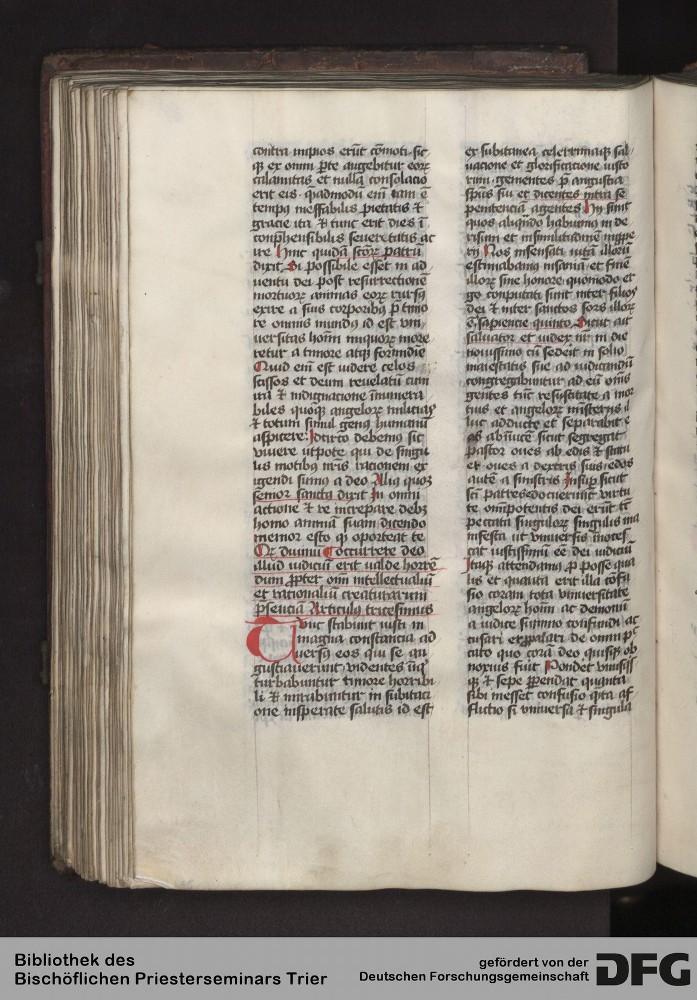 contra impios erūt cōmoti. sic
qꝫ ex omni ꝑte augebitur eoꝝ
calamitas et nulla consolacio
erit eis. quādmodū eni iam ē
tempus ineffabilis pietatis ⁊
gracie ita ⁊ tunc erit dies ī
conp̄hensibilis seueritatis ac
ire Hinc quidā sctoꝝ patrū
dixit. Si possibile esset in ad
uentu dei post resurrectionē
mortuoꝝ animas eoꝝ rursꝰ
exire a suis corporibus p̄ timo
re omnis mundus id est vni
uersitas hoīm iniquoꝝ more
retur a timore atqꝫ formidīe
Quid eni est videre celos
scissos et deum reuelatū cum
ira ⁊ indignacione inumera
biles quoqꝫ angeloꝝ milicias
⁊ totum simul genus humanū
aspicere. Idcirco debemus sic
viuere utpote qui de singu
lis motibus nr̄is racionem ex
igendi simus a deo Aliꝰ quoqꝫ
senioꝝ sancta dixit In omni
actione ⁊ re increpare debꝫ
homo animā suam dicendo
memor esto qꝛ oporteat te
occurrere deo
illud iudiciū erit valde horrē
dum ꝓpter om̄ intellectualiū
et racionaliū creaturarum
p̄senciā Articulus tricesimus
Tunc stabunt iusti in
magna constancia ad
uersꝰ eos qui se an
gustiauerunt videntes īiqꝫ
turbabuntur timore horribi
li ⁊ mirabuntur in subitaci
one insperate salutis id est
ex subitanea celerrimaqꝫ sal
uacione et glorificacione iusto
rum. gementes p̄ angustia
spūs sui et dicentes intra se
penitencia agentes hij sunt
quos aliqūdo habuimꝰ in de
risum et in similitudinē impꝑe
rij Nos insensati vitā illorū
estimabamꝰ insaniā et finē
illoꝝ sine honore quomodo er
go conputati sunt inter filios
dei ⁊ inter sanctos sors illoꝝ
ē. sapiencie quinto. Sicut ait
saluator et videtꝛ in die
nouissimo cū sederit in solio
maiestatis sue ad iudicandū
congregabuntur ad eū om̄s
gentes tūc resuscitate a mor
tuis et angeloꝝ misterijs il
luc adducte et separabit e
os abīuicē sicut segregat
pastor oues ab edis ⁊ statu
et oues a dextris suis edos
autē a sinistris Insuꝑ sicut
scī patres edocuerunt virtu
te omnipotentis dei erūt tc̄
peccata singuloꝝ singulis ma
nifesta ut vniuersis innotes
cat iustissimū eē dei iudiciū
Itaqꝫ attendamꝰ ꝓ posse qua
lis et quanta erit illa cōfu
sio coram tota vniuersitate
angeloꝝ hoīm ac demonū
a iudice summo confundi ac
cusari expalari de omni pc̄
cato quo corā deo quisqꝫ ob
noxius fuit Pondet vnusqs
qꝫ ⁊ sepe ꝓpendat quanta
sibi inesset confusio qͣta af
flictio si vniuersa ⁊ singula
Bibliothek des
Bischöflichen Priesterseminars Trier
gefördert von der
Deutschen Forschungsgemeinschaft
DFG